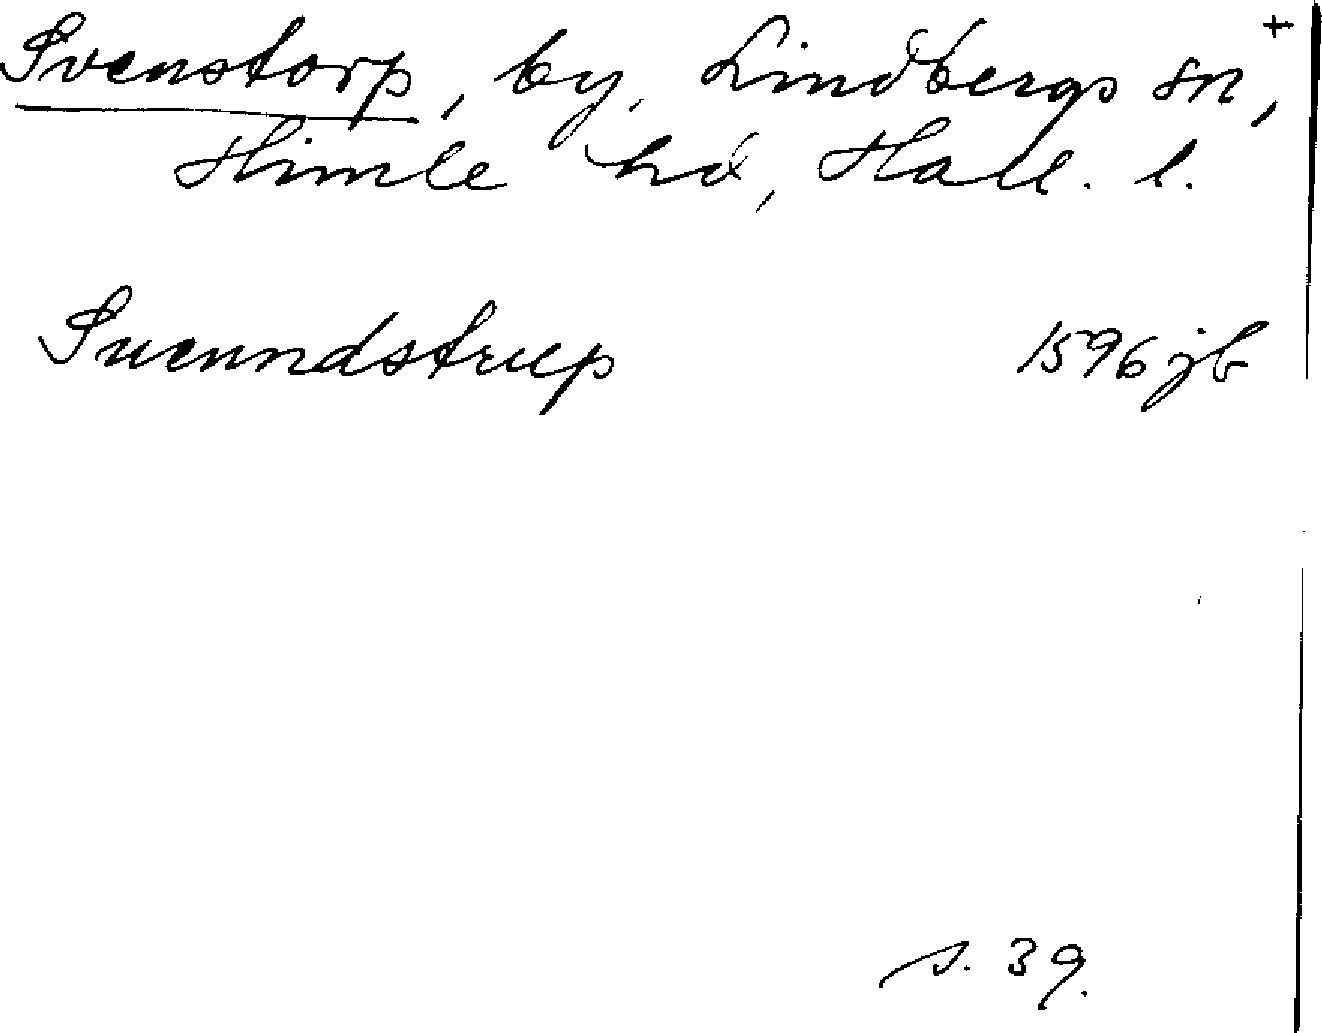 Svenstorp, by, Lindbergs sn, +
Himle hd, Hall. l.
Suenndstrup 1596 jb
s. 39.